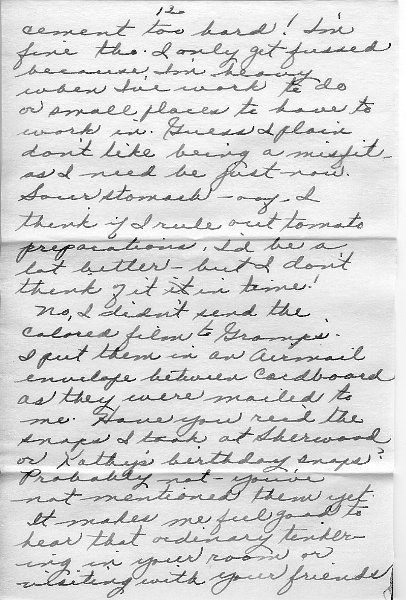 12
cement too hard! I'm
fine tho. I only get fussed
because I'm heavy
when I've work to do
or small places to have to
work in. Guess I plain
don't like being a misfit -
as I need be just now.
Sour stomach -oog. I
think if I rule out tomato
preparations, I'd be a
lot better - but I don't
think of it it in time!
No, I didn't send the
colored film to Gramps.
I put them in an Airmail
envelope between Cardboard
as they were mailed to
me. Have you rec'd the
snaps I took at Sherwood
or Kathy's birthday snaps?
Probably not - you've
not mentioned them yet.
It makes me feel good to
hear that ordinary tinker-
ing in your room or
visiting with your friends